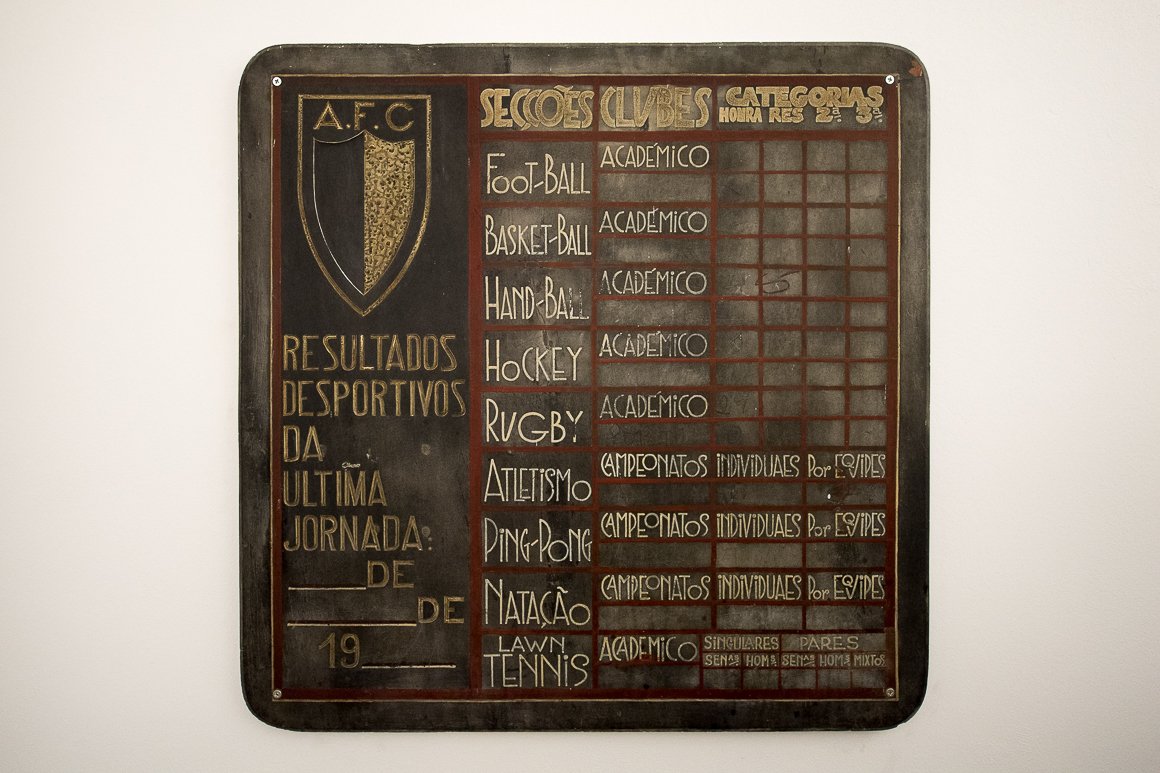 A.F.C
RESULTADOS
DESPORTIVOS
DA
ULTIMA
JORNADA:
DE
DE
19
SECÇOÊS CLUBES CATEGORIAS
HONRA RES 2ª 3ª
FOOT-BALL ACADÉMICO
BASKET-BALL ACADÉMICO
HAND-BALL ACADÉMICO
HOCKEY ACADÉMICO
RUGBY ACADÉMICO
ATLETISMO CAMPEONATOS INDIVIDUAES POR EQUIPES
PING-PONG CAMPEONATOS INDIVIDUAES POR EQUIPES
NATAÇÃO CAMPEONATOS INDIVIDUAES POR EQUIPES
LAWN TENNIS ACADEMICO SINGULARES PARES
SENAS HOMS SENAS HOMS MIXTOS